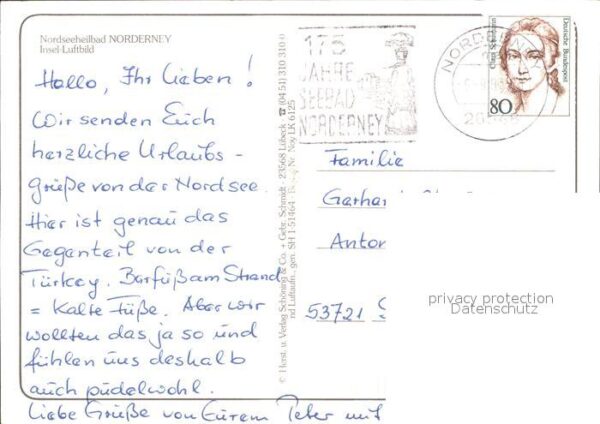 Nordseeheilbad NORDERNEY
Insel-Luftbild
Hallo, Ihr Lieben!
Wir senden Euch
herzliche Urlaubs-
grüße von der Nordsee.
Hier ist genau das
Gegenteil von der
Türkey. Barfuß am Strand
= Kalte Füße. Aber wir
wollten das ja so und
fühlen uns deshalb
auch pudelwohl.
Liebe Grüße von Eurem Peter mit
© Herst. u. Verlag Schöning & Co. + Gebr. Schmidt · 23568 Lübeck ☎ (04 51) 310 310
Nr. Noy LK 6125
nd Luftaufn.
gen. SH 1-51464
175
JAHRE
SEEBAD
NORDERNEY
NORD
Clara Schumann
Deutsche Bundespost
80
Familie
Gerha
Anton
53721 S
privacy protection
Datenschutz